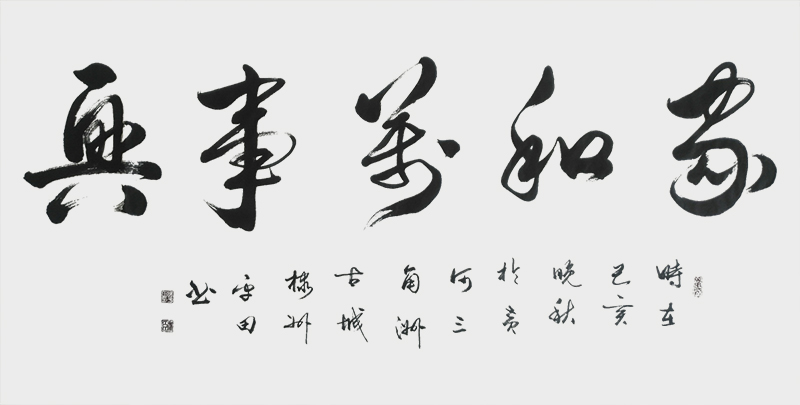 家和萬事興
時在
己亥
晚秋
於黃
河三
角洲
古城
棣州
田
书